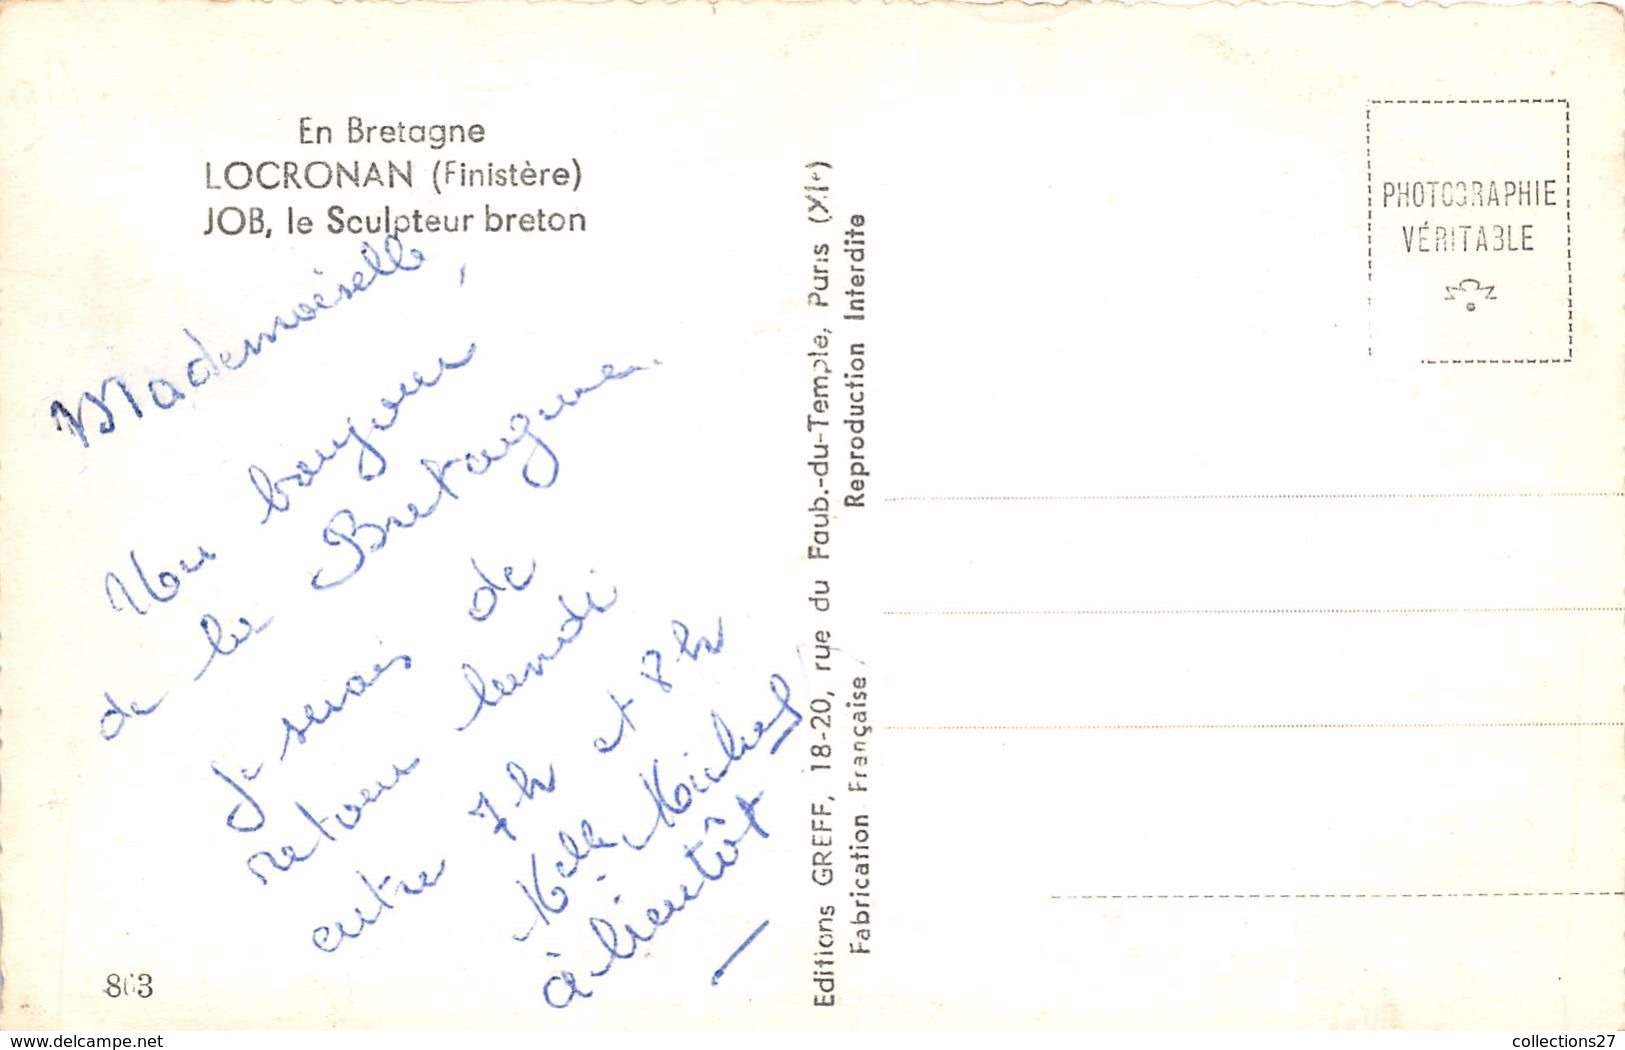 En Bretagne
LOCRONAN (Finistère)
JOB, le Sculpteur breton
Mademoiselle,
Un bonjour
de la Bretagne.
Je serais de
retour lundi
entre 7h et 8h
Melle Michel
à bientôt
863
Editions GREFF, 18-20, rue du Faub.-du-Temple, Paris (XIe)
Fabrication Française Reproduction Interdite
PHOTOGRAPHIE
VÉRITABLE
www.delcampe.net
collections27